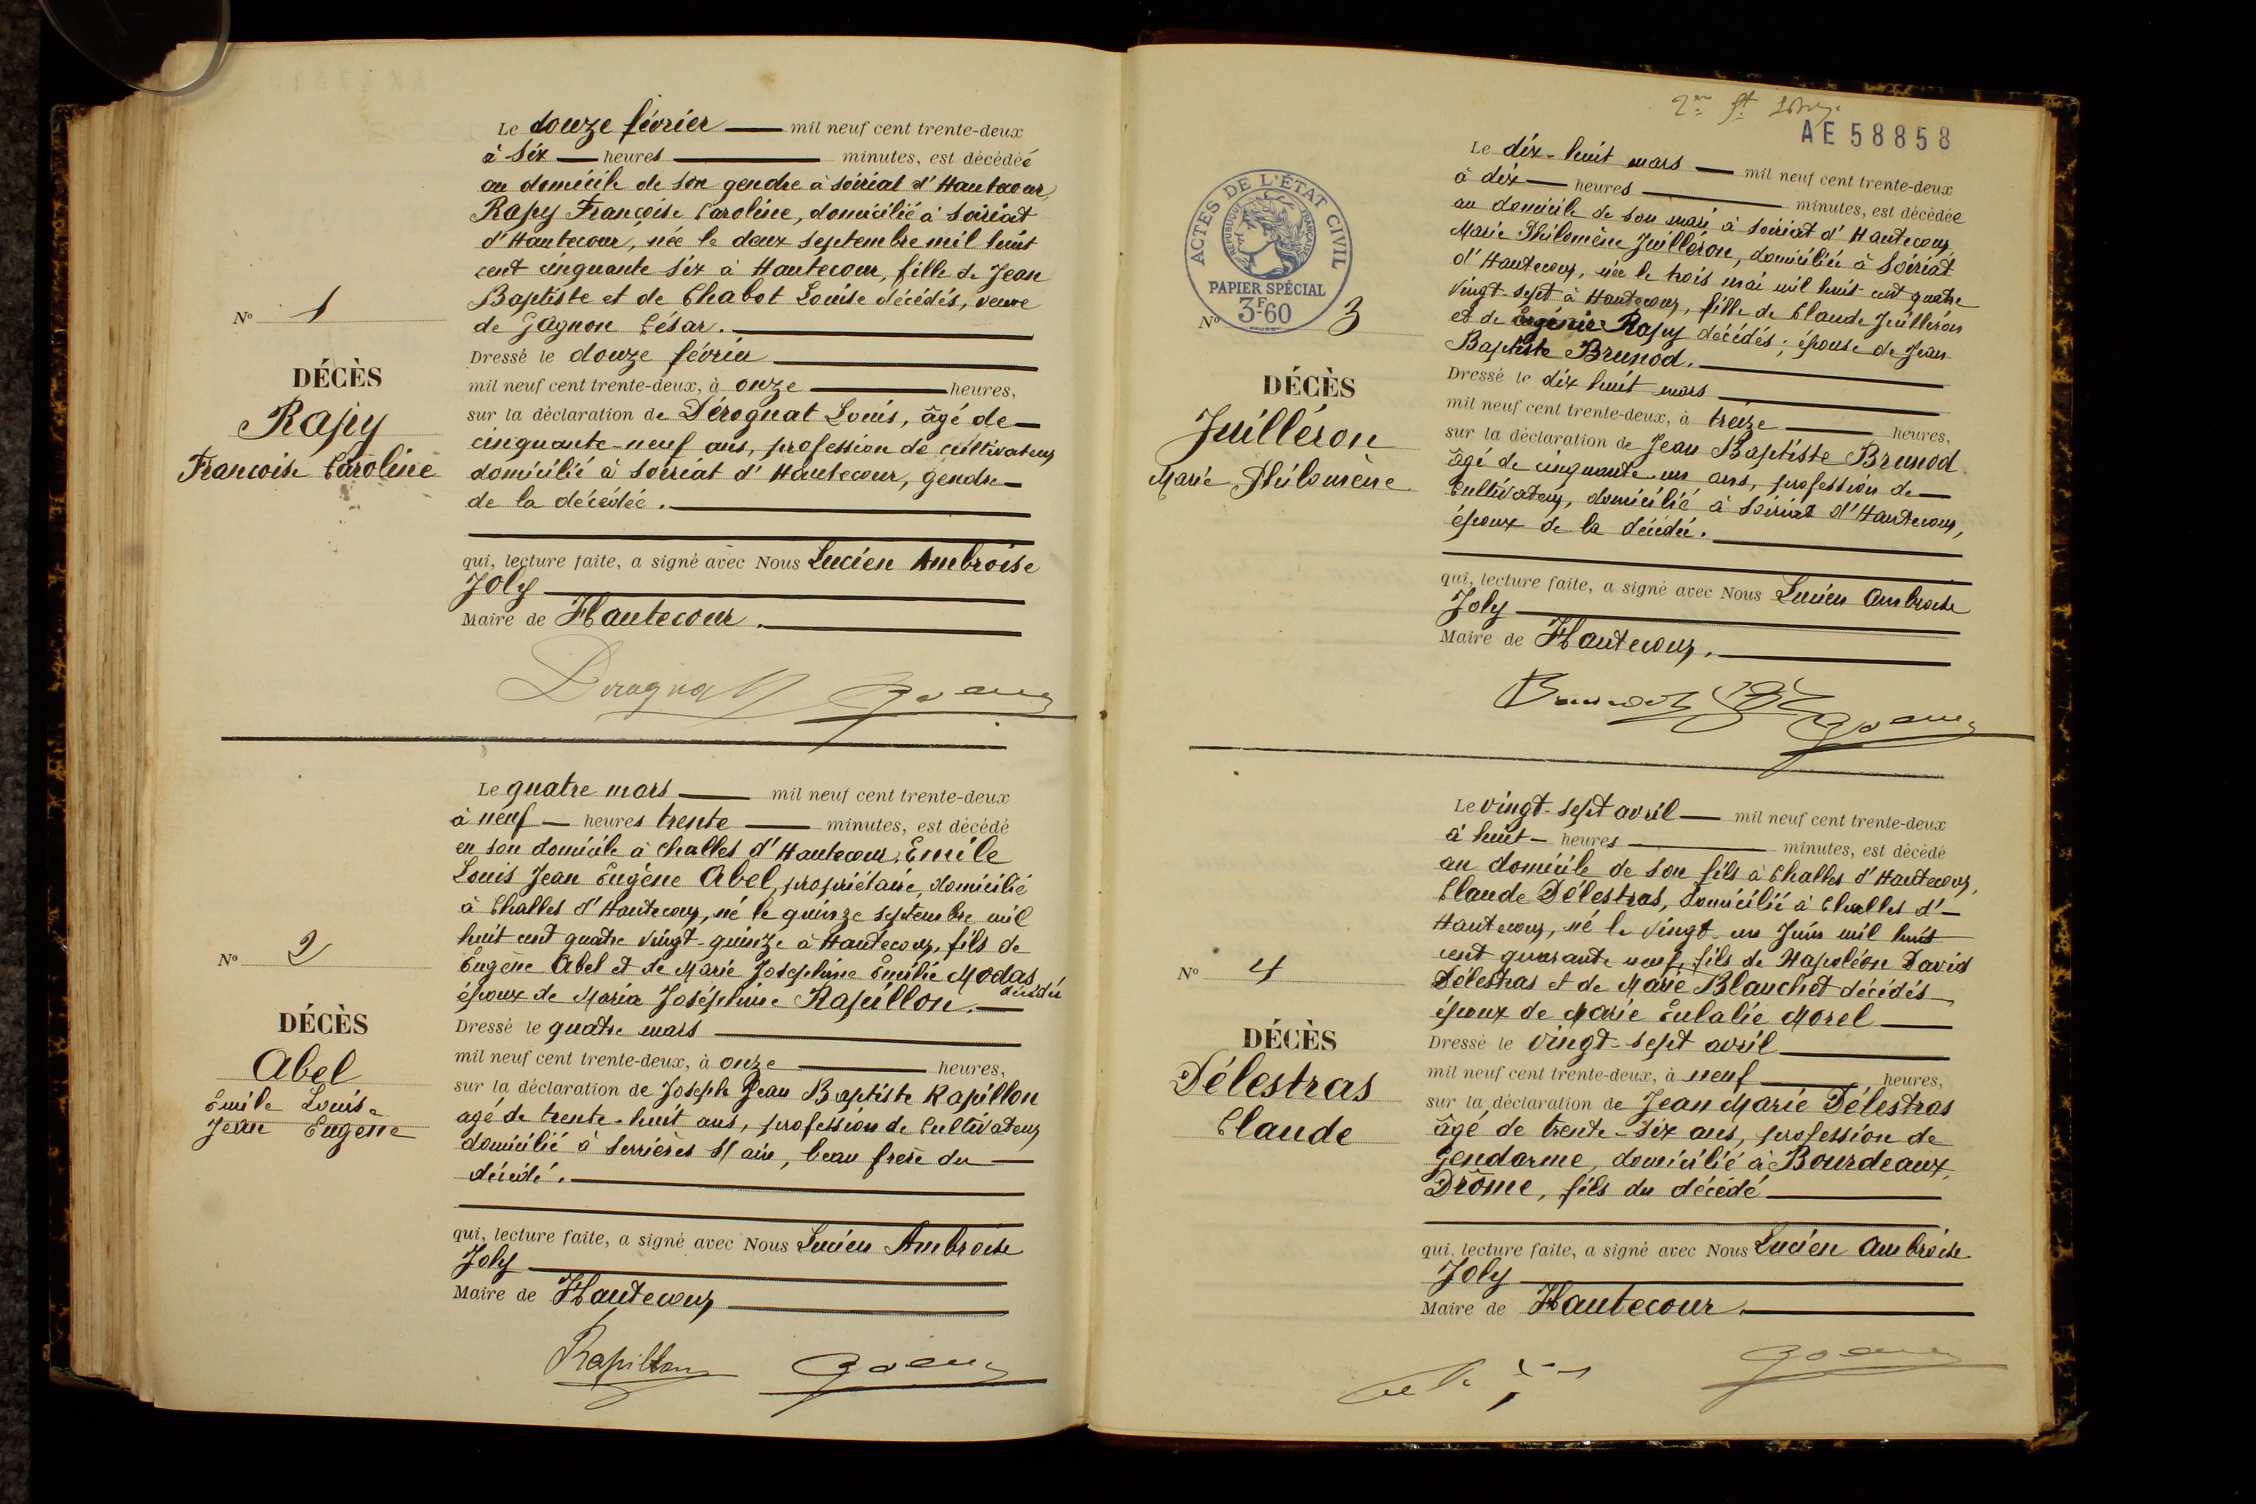 Le douze février mil neuf cent trente-deux
à six heures minutes, est décédée
au domicile de son gendre à Soiriat d'Hautecour,
Rapy Françoise Caroline, domicilié à Soiriat
d'Hautecour, née le deux septembre mil huit
cent cinquante six à Hautecour, fille de Jean
Baptiste et de Chabot Louise décédés, veuve
de Gagnon César.
Dressé le douze février
mil neuf cent trente-deux, à onze heures,
sur la déclaration de Dérognat Louis, âgé de
cinquante-neuf ans, profession de cultivateur
domicilié à Soiriat d'Hautecour, gendre
de la décédée.
qui, lecture faite, a signé avec Nous Lucien Ambroise
Joly
Maire de Hautecour.
Nº 1
DÉCÈS
Rapy
Francoise Caroline
Le quatre mars mil neuf cent trente-deux
à neuf heures trente minutes, est décédé
en son domicile à Challes d'Hautecour, Emile
Louis Jean Eugène Abel, propriétaire, domicilié
à Challes d'Hautecour, né le quinze septembre mil
huit cent quatre vingt-quinze à Hautecour, fils de
Eugène Abel et de Marie Joséphine Emélie Modas
décédés
époux de Maria Joséphine Rapillon.
Dressé le quatre mars
mil neuf cent trente-deux, à onze heures,
sur la déclaration de Joseph Jean Baptiste Rapillon
agé de trente-huit ans, profession de Cultivateur
domicilié à Serrières S/ ain, beau frere du
décédé.
qui, lecture faite, a signé avec Nous Lucien Ambroise
Joly
Maire de Hautecour
Rapillon
Nº 2
DÉCÈS
Abel
Emile Louis
Jean Eugène
AE 58858
ACTES DE L'ÉTAT CIVIL
RÉPUBLIQUE FRANÇAISE
PAPIER SPÉCIAL
3F60
Le dix-huit mars mil neuf cent trente-deux
à dix heures minutes, est décédée
au domicile de son mari à Soiriat d'Hautecour,
Marie Philomène Juilléron, domiciliée à Soiriat
d'Hautecour, née le trois mai mil huit cent quatre
vingt-sept à Hautecour, fille de Claude Juilléron
et de Eugénie Rapy décédés; épouse de Jean
Baptiste Brunod.
Dressé le dix huit mars
mil neuf cent trente-deux, à treize heures,
sur la déclaration de Jean Baptiste Brunod
âgé de cinquante un ans, profession de
Cultivateur, domicilié à Soiriat d'Hautecour,
époux de la décédée.
qui, lecture faite, a signé avec Nous Lucien Ambroise
Joly
Maire de Hautecour.
Nº 3
DÉCÈS
Juilléron
Marie Philomène
Le vingt-sept avril mil neuf cent trente-deux
à huit heures minutes, est décédé
au domicile de son fils à Challes d'Hautecour,
Claude Délestras, domicilié à Challes d'
Hautecour, né le vingt-un Juin mil huit
cent quarante neuf, fils de Napoléon David
Délestras et de Marie Blanchet décédés
époux de Marie Eulalie Morel
Dressé le vingt-sept avril
mil neuf cent trente-deux, à neuf heures,
sur la déclaration de Jean Marie Délestras
âgé de trente-six ans, profession de
Gendarme, domicilié à Bourdeaux,
Drôme, fils du décédé
qui, lecture faite, a signé avec Nous Lucien Ambroise
Joly
Maire de Hautecour.
Nº 4
DÉCÈS
Délestras
Claude